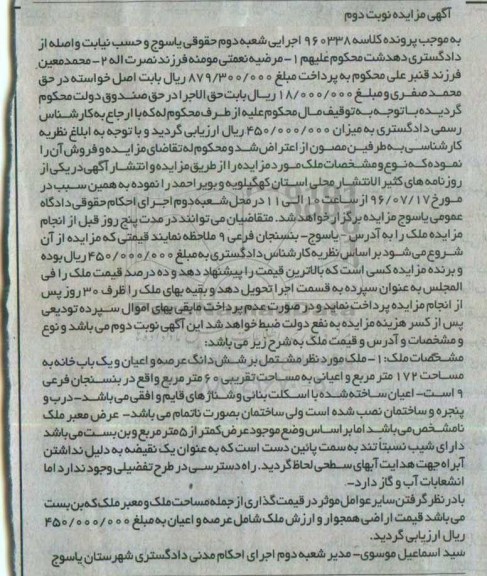 آگهی مزایده نوبت دوم
به موجب پرونده کلاسه ۹۶۰۳۳۸ اجرایی شعبه دوم حقوقی یاسوج و حسب نیابت واصله از
دادگستری دهدشت محکوم علیهم ۱- مرضیه نعمتی مومنه فرزند نصرت اله ۲- محمدمعین
فرزند قنبر علی محکوم به پرداخت مبلغ ۸۷۹/۳۰۰/۰۰۰ ریال بابت اصل خواسته در حق
محمد صفری و مبلغ ۱۸/۰۰۰/۰۰۰ ریال بابت حق الاجرا در حق صندوق دولت محکوم
گردیده با توجه به توقیف مال محکوم علیه از طرف محکوم له که با ارجاع به کارشناس
رسمی دادگستری به میزان ۴۵۰/۰۰۰/۰۰۰ ریال ارزیابی گردید و با توجه به ابلاغ نظریه
کارشناسی به طرفین مصون از اعتراض شد و محکوم له تقاضای مزایده و فروش آن را
نموده که نوع و مشخصات ملک مورد مزایده را از طریق مزایده و انتشار آگهی در یکی از
روزنامه های کثیر الانتشار محلی استان کهگیلویه و بویراحمد را نموده به همین سبب در
مورخ ۹۶/۰۷/۱۷ از ساعت ۱۰ الی ۱۱ در محل شعبه دوم اجرای احکام حقوقی دادگاه
عمومی یاسوج مزایده برگزار خواهد شد. متقاضیان می توانند در مدت پنج روز قبل از انجام
مزایده ملک را به آدرس - یاسوج- بنسنجان فرعی ۹ ملاحظه نمایند قیمتی که مزایده از آن
شروع می شود بر اساس نظریه کارشناس دادگستری به مبلغ ۴۵۰/۰۰۰/۰۰۰ ریال بوده
و برنده مزایده کسی است که بالاترین قیمت را پیشنهاد دهد و ده درصد قیمت ملک را فی
المجلس به عنوان سپرده به قسمت اجرا تحویل دهد و بقیه بهای ملک را ظرف ۳۰ روز پس
از انجام مزایده پرداخت نماید و در صورت عدم پرداخت مابقی بهای اموال سپرده تودیعی
پس از کسر هزینه مزایده به نفع دولت ضبط خواهد شد این آگهی نوبت دوم می باشد و نوع
و مشخصات و آدرس و قیمت ملک به شرح زیر می باشد:
مشخصات ملک: ۱- ملک مورد نظر مشتمل بر شش دانگ عرصه و اعیان و یک باب خانه به
مساحت ۱۷۲ متر مربع و اعیانی به مساحت تقریبی ۶۰ متر مربع واقع در بنسنجان فرعی
۹ است- اعیان ساخته شده با اسکلت بنائی و شناژهای قایم و افقی می باشد- درب و
پنجره و ساختمان نصب شده است ولی ساختمان بصورت ناتمام می باشد- عرض معبر ملک
نامشخص می باشد اما بر اساس وضع موجود عرض کمتر از ۵ متر مربع و بن بست می باشد
دارای شیب نسبتا تند به سمت پائین دست است که به عنوان یک نقیضه به دلیل نداشتن
آبراه جهت هدایت آبهای سطحی لحاظ گردید. راه دسترسی در طرح تفضیلی وجود ندارد اما
انشعابات آب و گاز دارد-
با در نظر گرفتن سایر عوامل موثر در قیمت گذاری از جمله مساحت ملک و معبر ملک که بن بست
می باشد قیمت اراضی همجوار و ارزش ملک شامل عرصه و اعیان به مبلغ ۴۵۰/۰۰۰/۰۰۰
ریال ارزیابی گردید.
سید اسماعیل موسوی- مدیر شعبه دوم اجرای احکام مدنی دادگستری شهرستان یاسوج